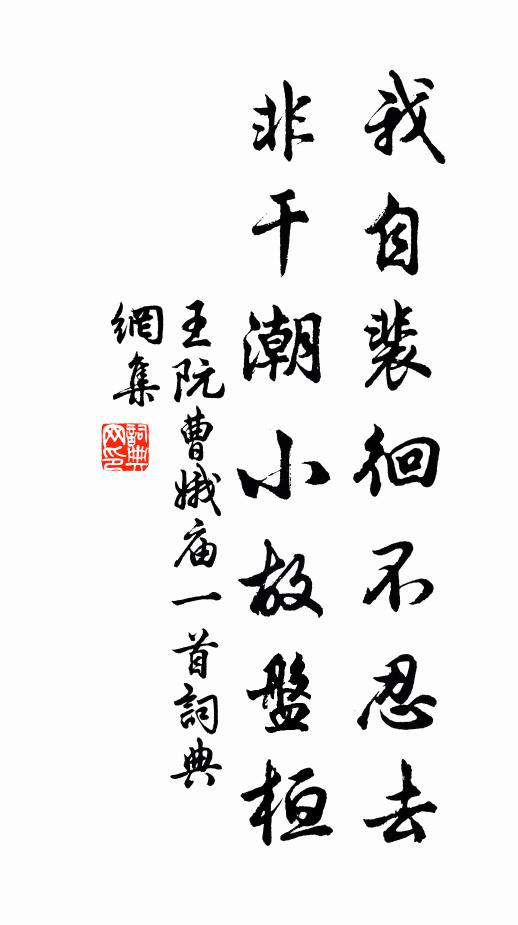 我自裴徊不忍去
非干潮小故盤桓
王阮曹娥庙一首詞典
網集
詞典
网印